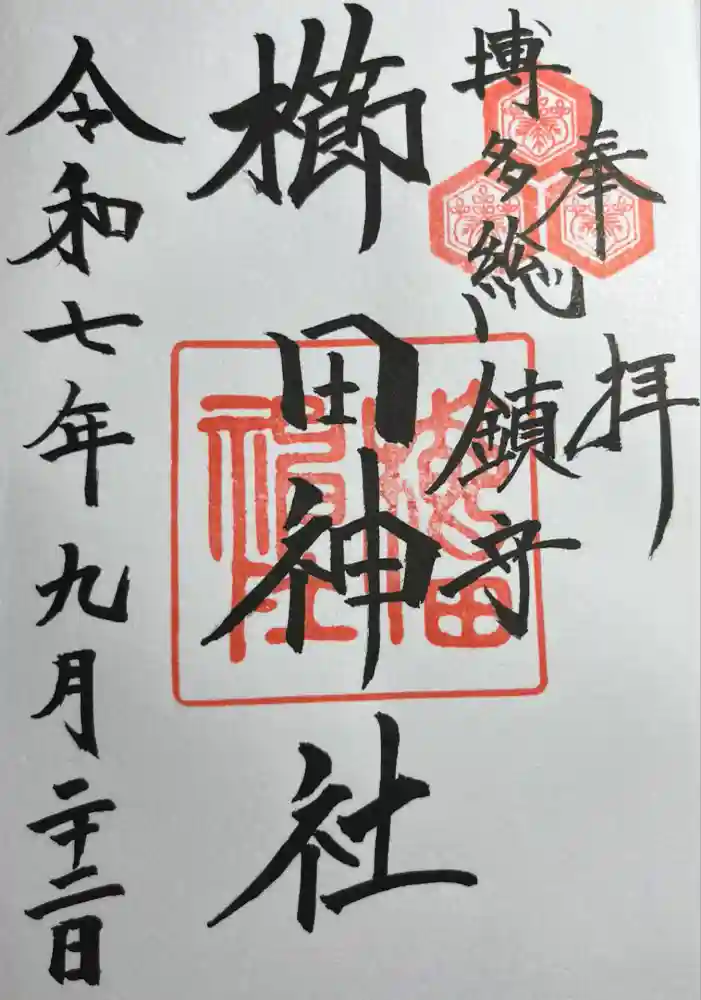 奉拝
博多総鎮守
櫛田神社
令和七年九月二十二日
櫛田神社